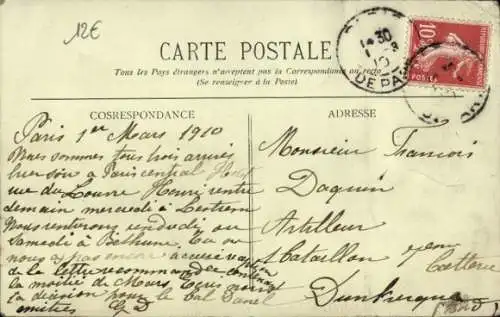 12€
CARTE POSTALE
Tous les Pays étrangers n'acceptent pas la Correspondance au recto
(Se renseigner à la Poste)
CORRESPONDANCE
Paris 1er Mars 1910
Nous sommes tous trois arrivés
hier soir à Paris central Hotel
rue du Louvre Henri rentre
demain mercredi à Lestrem
Nous rentrerons vendredi ou
Samedi à Bethune. Tu ne
nous a pas encore accusé
de la lettre recommandée
la moitié de Mars
la décision pour le bal
amitiés
ADRESSE
Monsieur Francois
Daquin
Artilleur
Bataillon
Batterie
Dunkerque
(Nord)
10c
POSTES
DE PA